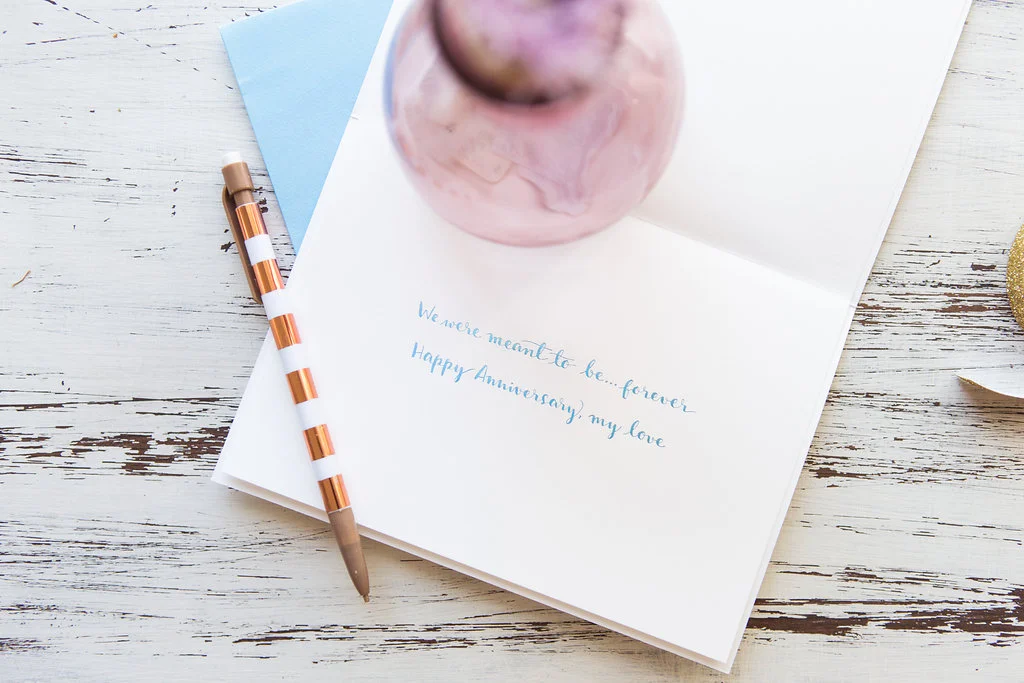 We were meant to be...forever
Happy Anniversary, my love